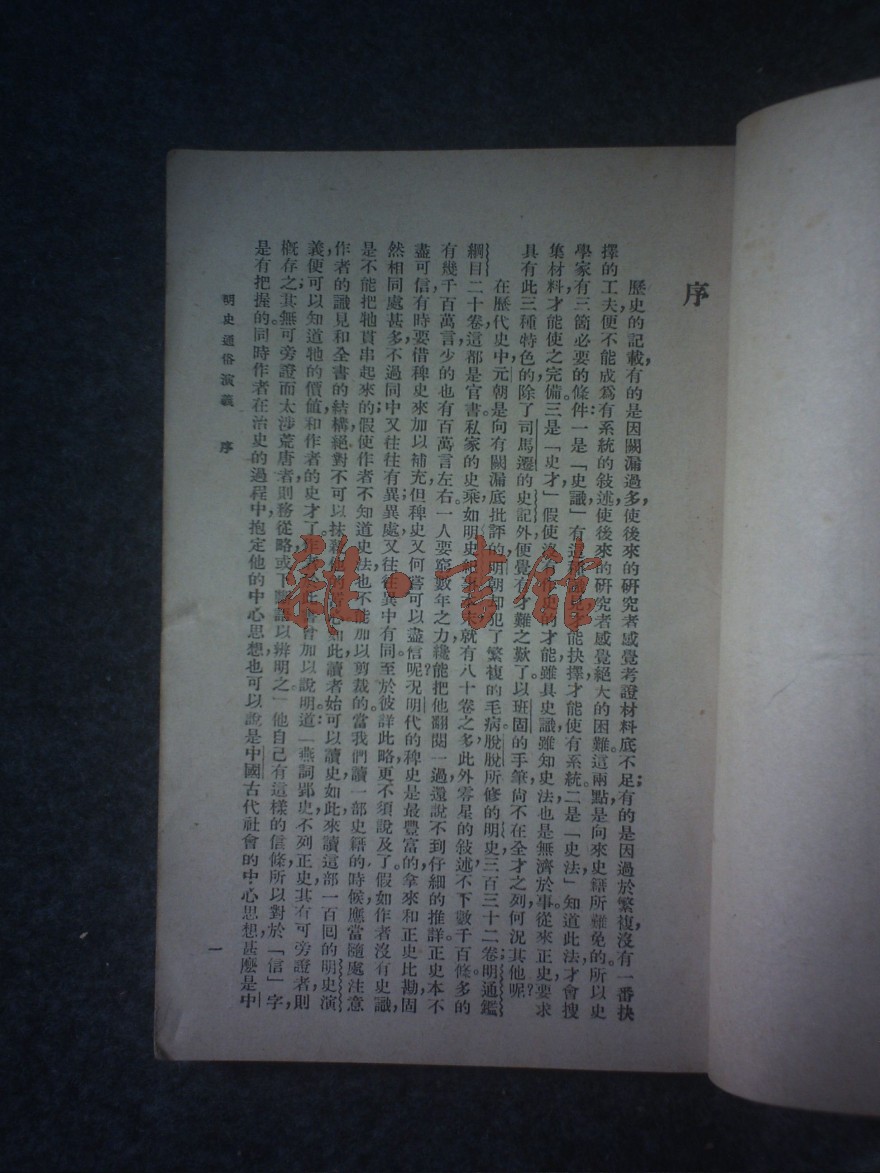 序
歷史的記載，有的是因闕漏過多，使後來的研究者感覺考證材料底不足；有的是因過於繁複，沒有一番抉
擇的工夫，便不能成為有系統的敍述，使後來的研究者感覺絕大的困難。這兩點是向來史籍所難免的。所以史
學家有三箇必要的條件：一是「史識」，有這種識見才能抉擇，才能使有系統。二是「史法」，知道此法，才會搜
集材料，才能使之完備。三是「史才」，假使沒有史的才能，雖具史識，雖知史法，也是無濟於事。從來正史要求
具有此三種特色的，除了司馬遷的史記外，便覺有才難之歎了。以班固的手筆，尙不在全才之列，何況其他呢？
在歷代史中，元朝是向有闕漏底批評的，明朝却犯了繁複的毛病。脫脫所修的明史三百三十二卷，明通鑑
綱目二十卷，這都是官書。私家的史乘，如明史紀事本末就有八十卷之多，此外零星的敍述，不下數千百條，多的
有幾千百萬言，少的也有百萬言左右。一人要窮數年之力，纔能把他翻閱一過，還說不到仔細的推詳。正史本不
盡可信，有時要借稗史來加以補充，但稗史又何嘗可以盡信呢？况明代的稗史是最豐富的，拿來和正史比勘，固
然相同處甚多，不過同中又往往有異；異處又往往異中有同。至於彼詳此略，更不須說及了。假如作者沒有史識，
是不能把牠貫串起來的；假使作者不知道史法，也不能加以剪裁的。當我們讀一部史籍的時候，應當隨處注意
作者的識見和全書的結構，絕對不可以扶 如此讀者始可以讀史，如此來讀這部一百囘的明史演
義，便可以知道牠的價值和作者的史才了。作者 書會加以說明道：「燕詞郢史，不列正史，其有可旁證者，則
概存之，其無可旁證而太涉荒唐者，則務從略，或下斷語以辨明之。」他自己有這樣的信條，所以對於「信」字，
是有把握的。同時作者在治史的過程中，抱定他的中心思想，也可以說是中國古代社會的中心思想。甚麼是中
明史通俗演義 序
一
雜·書館